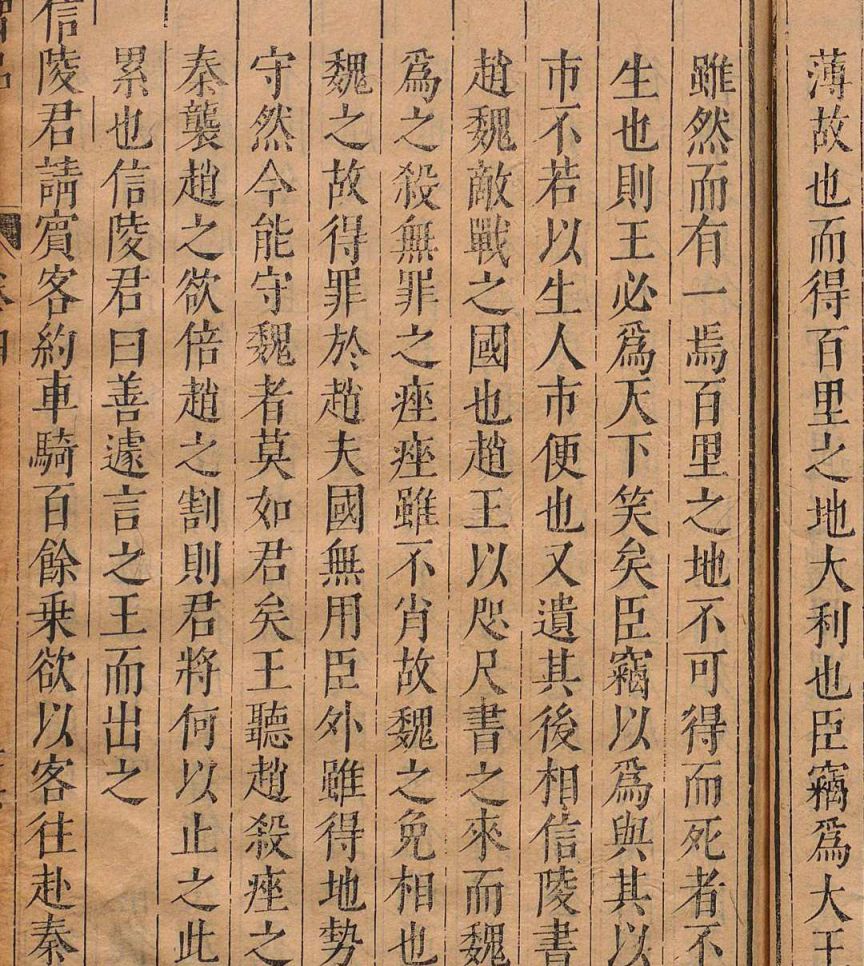 薄故也而得百里之地大利也臣竊爲大王
雖然而有一焉百里之地不可得而死者不
生也則王必爲天下笑矣臣竊以爲與其以
市不若以生人市便也又遺其後相信陵書
趙魏敵戰之國也趙王以咫尺書之來而魏
爲之殺無罪之痤痤雖不肖故魏之免相也
魏之故得罪於趙夫國無用臣外雖得地勢
守然今能守魏者莫如君矣王聽趙殺痤之
秦襲趙之欲倍趙之割則君將何以止之此
累也信陵君曰善遽言之王而出之
信陵君請賓客約車騎百餘乗欲以客往赴秦